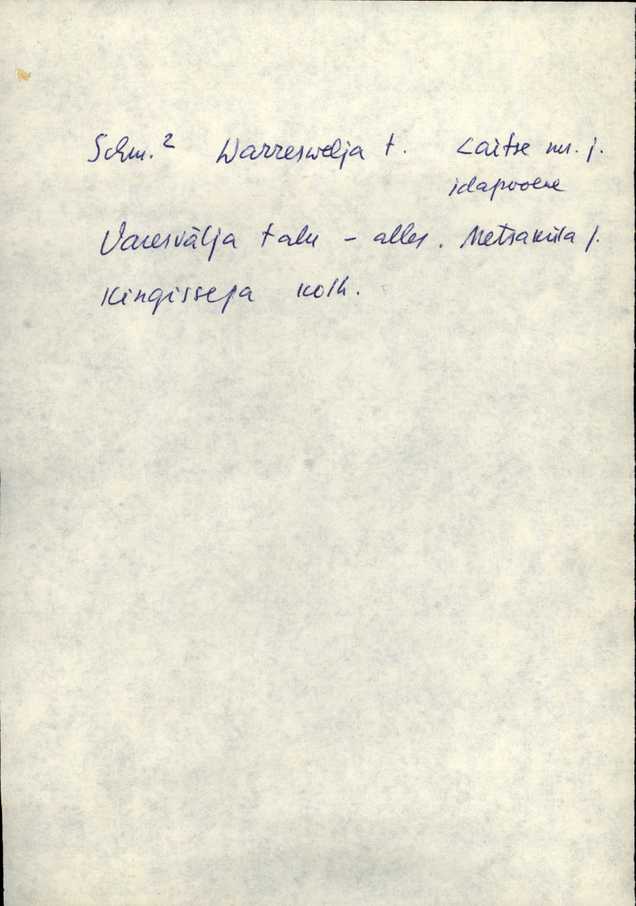 Schm.² Warreswelja t. Laitse ms. j.
idapoolne
Varesvälja talu – alles. Metsaküla j.
Kingissepa kolh.